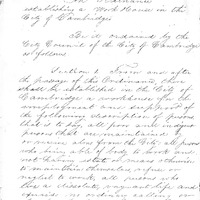 An Ordinance
establishing a Work House in the
City of Cambridge.
Be it ordained by the
City Council of the City of Cambridge
as follows.
Section 1. From and after
the passage of this Ordinance, there
shall be established in the City of
Cambridge a workhouse for the
employment and support of
the following description of persons
that is to say, all poor and indigent
persons that are maintained by
or receive alms from the City; all persons
who being able of body to work and
not having estate or means otherwise
to maintain themselves refuse or
neglect to work; all persons who
live a dissolute, vagrant life and
exercise no ordinary calling or